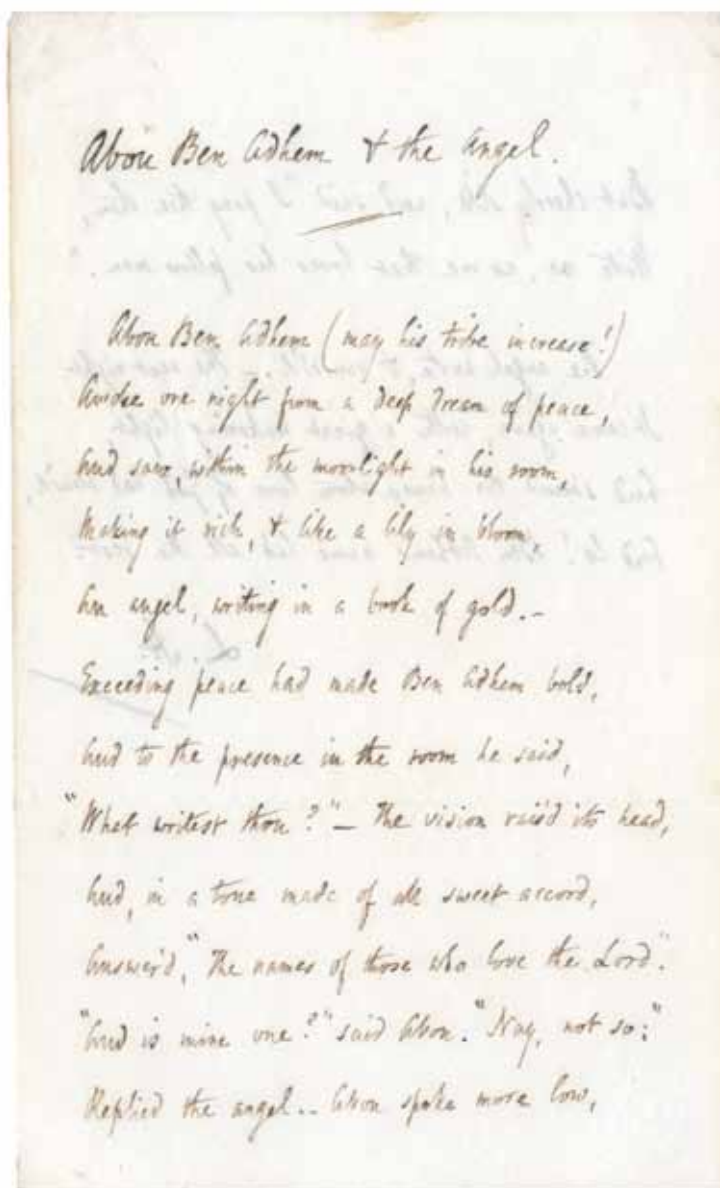 Abou Ben Adhem & the Angel.
Abou Ben Adhem (may his tribe increase!)
Awoke one night from a deep dream of peace,
And saw, within the moonlight in his room,
Making it rich, & like a lily in bloom,
An angel, writing in a book of gold.—
Exceeding peace had made Ben Adhem bold,
And to the presence in the room he said,
"What writest thou?"— The vision rais'd its head,
And, in a tone made of all sweet accord,
Answer'd, "The names of those who love the Lord".
"And is mine one?" said Abou. "Nay, not so;"
Replied the angel.— Abou spoke more low,